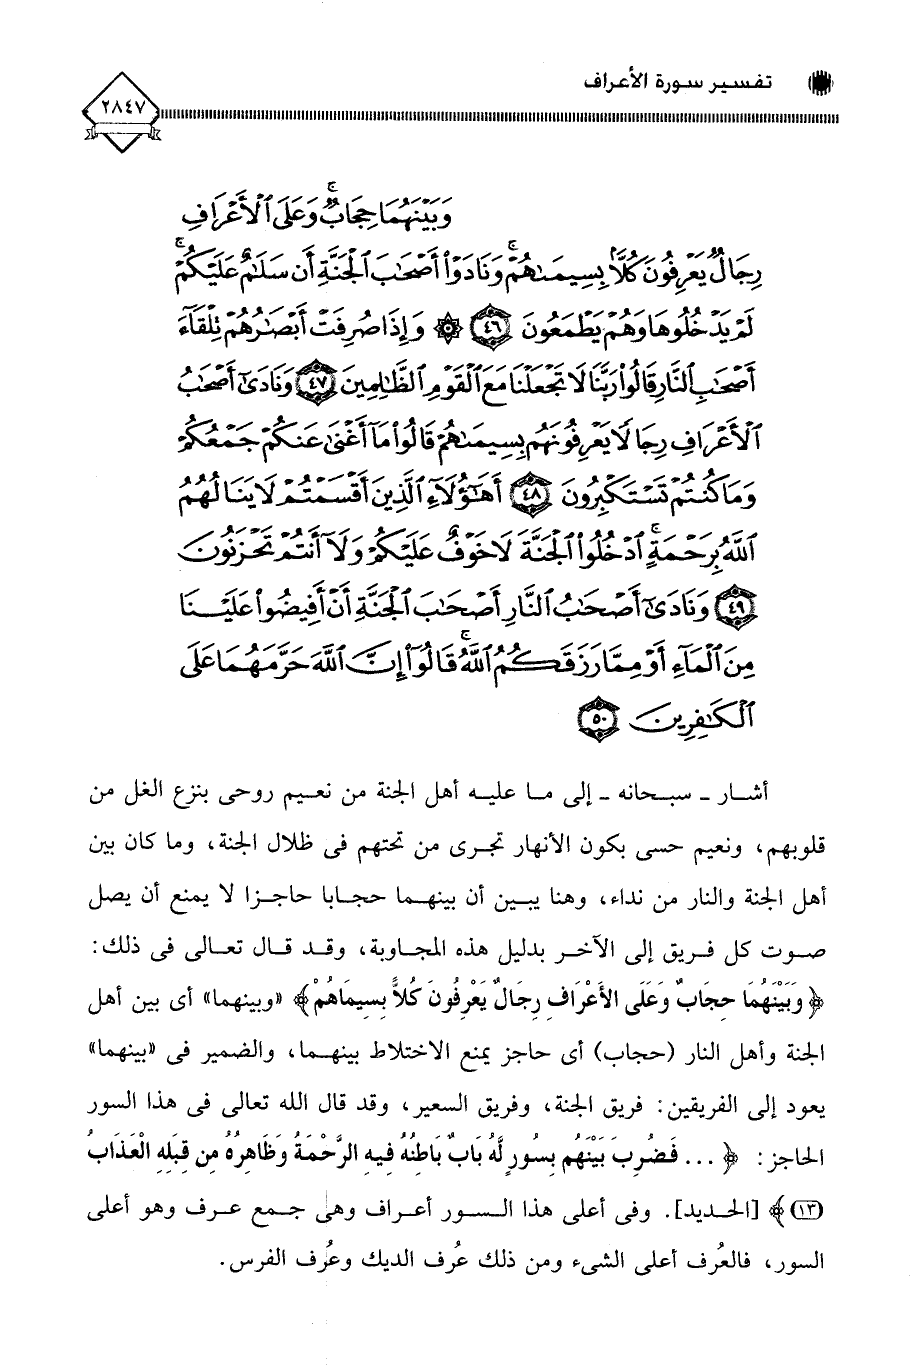 تفسير سورة الأعراف
٢٨٤٧
وَبَيْنَهُمَا حِجَابٌ ۚ وَعَلَى ٱلْأَعْرَافِ
رِجَالٌ يَعْرِفُونَ كُلًّۢا بِسِيمَىٰهُمْ ۚ وَنَادَوْا۟ أَصْحَـٰبَ ٱلْجَنَّةِ أَن سَلَـٰمٌ عَلَيْكُمْ ۚ
لَمْ يَدْخُلُوهَا وَهُمْ يَطْمَعُونَ ﴿٤٦﴾ ۞ وَإِذَا صُرِفَتْ أَبْصَـٰرُهُمْ تِلْقَآءَ
أَصْحَـٰبِ ٱلنَّارِ قَالُوا۟ رَبَّنَا لَا تَجْعَلْنَا مَعَ ٱلْقَوْمِ ٱلظَّـٰلِمِينَ ﴿٤٧﴾ وَنَادَىٰٓ أَصْحَـٰبُ
ٱلْأَعْرَافِ رِجَالًا يَعْرِفُونَهُم بِسِيمَىٰهُمْ قَالُوا۟ مَآ أَغْنَىٰ عَنكُمْ جَمْعُكُمْ
وَمَا كُنتُمْ تَسْتَكْبِرُونَ ﴿٤٨﴾ أَهَـٰٓؤُلَآءِ ٱلَّذِينَ أَقْسَمْتُمْ لَا يَنَالُهُمُ
ٱللَّهُ بِرَحْمَةٍ ۚ ٱدْخُلُوا۟ ٱلْجَنَّةَ لَا خَوْفٌ عَلَيْكُمْ وَلَآ أَنتُمْ تَحْزَنُونَ
﴿٤٩﴾ وَنَادَىٰٓ أَصْحَـٰبُ ٱلنَّارِ أَصْحَـٰبَ ٱلْجَنَّةِ أَنْ أَفِيضُوا۟ عَلَيْنَا
مِنَ ٱلْمَآءِ أَوْ مِمَّا رَزَقَكُمُ ٱللَّهُ ۚ قَالُوٓا۟ إِنَّ ٱللَّهَ حَرَّمَهُمَا عَلَى
ٱلْكَـٰفِرِينَ ﴿٥٠﴾
أشار ـ سبحانه ـ إلى ما عليه أهل الجنة من نعيم روحى بنزع الغل من
قلوبهم، ونعيم حسى بكون الأنهار تجرى من تحتهم فى ظلال الجنة، وما كان بين
أهل الجنة والنار من نداء، وهنا يبين أن بينهما حجابا حاجزا لا يمنع أن يصل
صوت كل فريق إلى الآخر بدليل هذه المجاوبة، وقد قال تعالى فى ذلك:
﴿وَبَيْنَهُمَا حِجَابٌ وَعَلَى الأَعْرَافِ رِجَالٌ يَعْرِفُونَ كُلاًّ بِسِيمَاهُمْ﴾ «وبينهما» أى بين أهل
الجنة وأهل النار (حجاب) أى حاجز يمنع الاختلاط بينهما، والضمير فى «بينهما»
يعود إلى الفريقين: فريق الجنة، وفريق السعير، وقد قال الله تعالى فى هذا السور
الحاجز: ﴿... فَضُرِبَ بَيْنَهُم بِسُورٍ لَّهُ بَابٌ بَاطِنُهُ فِيهِ الرَّحْمَةُ وَظَاهِرُهُ مِن قِبَلِهِ الْعَذَابُ
(١٣)﴾ [الحديد]. وفى أعلى هذا السور أعراف وهى جمع عرف وهو أعلى
السور، فالعُرف أعلى الشىء ومن ذلك عُرف الديك وعُرف الفرس.